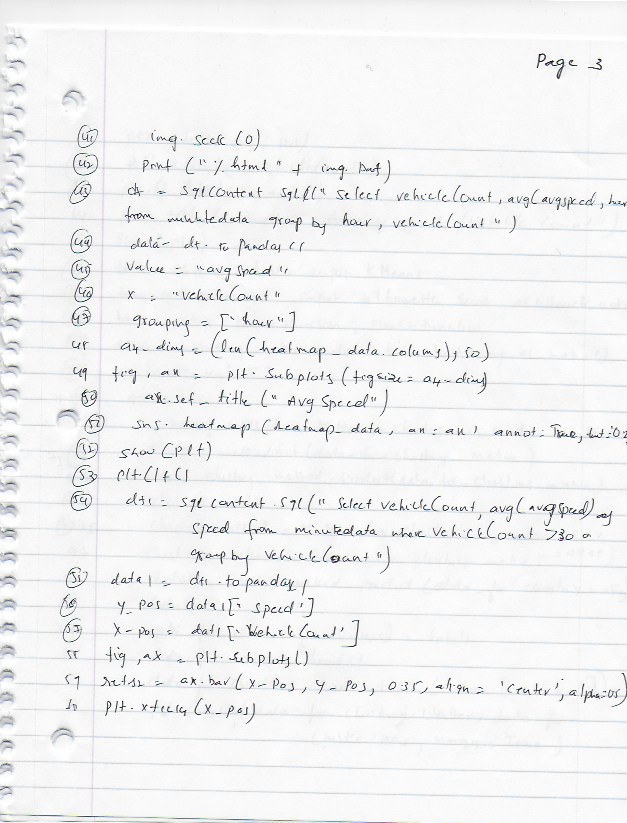 Page 3
41 img. seek (0)
42 print ("% html " + img. buf)
43 df = sqlContent sql(" Select vehicleCount, avg(avgspeed, hou
from minutedata group by hour, vehicleCount ")
44 data = df. to pandas ()
45 value = "avg Speed"
46 x = "vehicleCount"
47 grouping = ["hour"]
48 a4_dims = (len(heatmap_data.colums), 50)
49 fig, ax = plt. Subplots (figsize = a4_dims)
50 ax.set_title ("Avg Speed")
51 sns. heatmap (heatmap_data, ax = ax, annot = True, fmt = 0.2
52 show (plt)
53 plt.clf()
54 df1 = sql content. sql(" Select vehicleCount, avg(avgspeed) as
speed from minutedata where vehicleCount >30
group by vehicleCount ")
55 data1 = df1 .to panday
56 y_pos = data1['speed']
57 x-pos = dat1['VehicleCount']
58 fig, ax = plt.subplots()
59 = ax.bar (x-pos, y-pos, 0.35, align = 'center', alpha=0.5)
plt. xticks (x_pos)